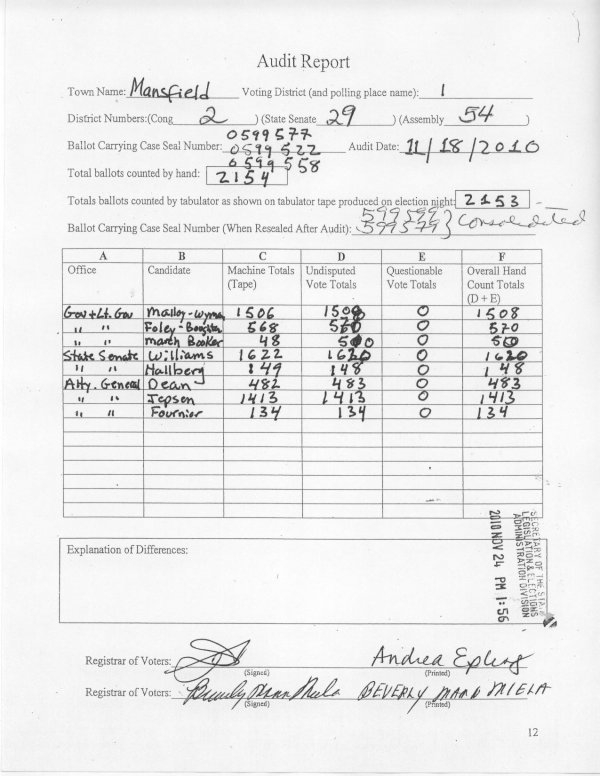 Audit Report
Town Name: Mansfield Voting District (and polling place name): 1
District Numbers:(Cong 2 ) (State Senate 29 ) (Assembly 54 )
0599577
Ballot Carrying Case Seal Number: 0599522 Audit Date: 11/18/2010
0599558
Total ballots counted by hand: 2154
Totals ballots counted by tabulator as shown on tabulator tape produced on election night: 2153
599599
Ballot Carrying Case Seal Number (When Resealed After Audit): 599579 } Consolidated
A B C D E F
Office Candidate Machine Totals (Tape) Undisputed Vote Totals Questionable Vote Totals Overall Hand Count Totals (D + E)
Gov + Lt. Gov Malloy-Wyman 1506 1508 0 1508
" " Foley-Boughton 568 570 0 570
" " Marsh Booker 48 50 0 50
State Senate Williams 1622 1620 0 1620
" " Hallberg 149 148 0 148
Atty. General Dean 482 483 0 483
" " Jepsen 1413 1413 0 1413
" " Fournier 134 134 0 134
SECRETARY OF THE STATE
LEGISLATION & ELECTIONS
ADMINISTRATION DIVISION
2010 NOV 24 PM 1:56
Explanation of Differences:
Registrar of Voters: Andrea Epling
(Signed) (Printed)
Registrar of Voters: Beverly Miela BEVERLY MIELA
(Signed) (Printed)
12